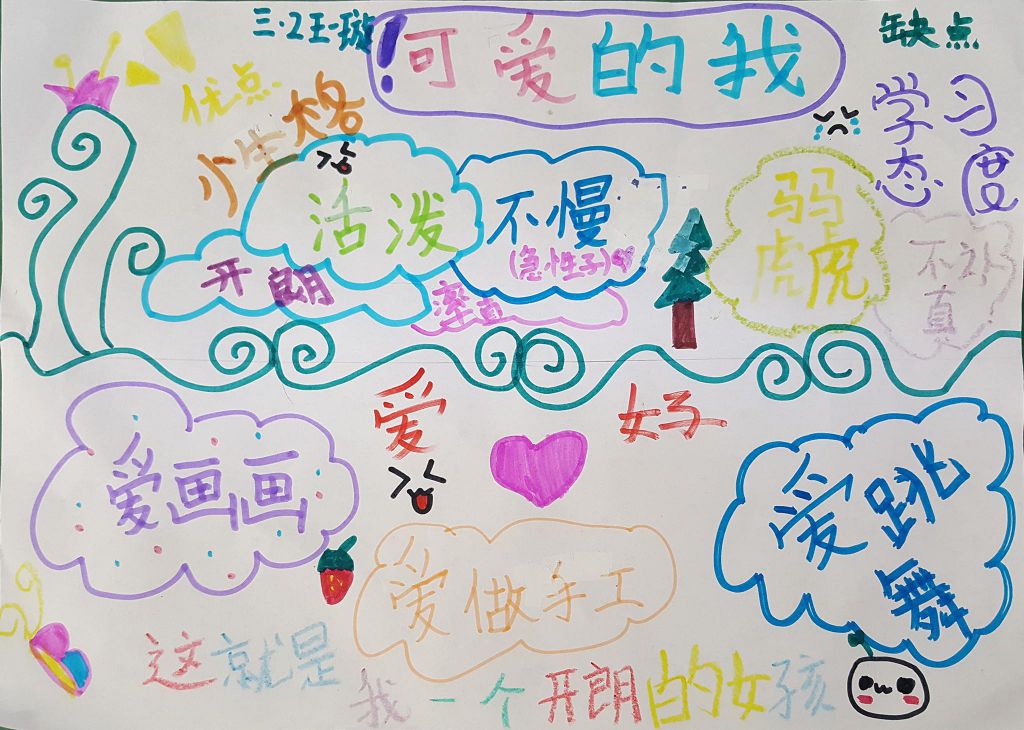 三·2王一璇
可爱的我
优点
缺点
性格
学习
态度
活泼
不慢
(急性子)
开朗
率直
马马
虎虎
爱好
爱画画
爱做手工
爱跳
舞
这就是我一个开朗的女孩